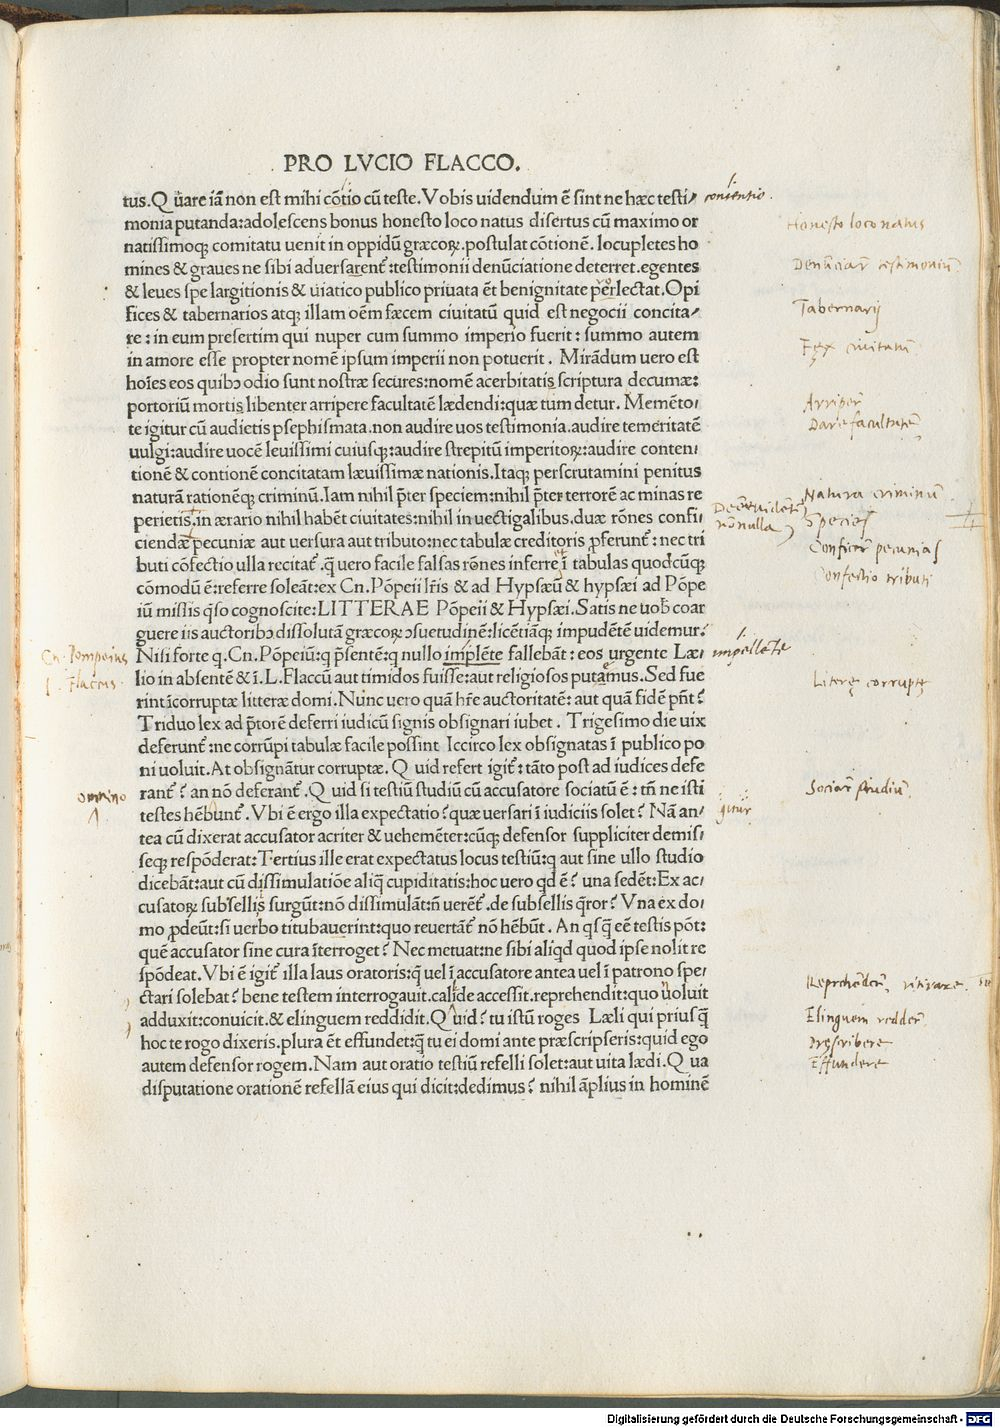 PRO LVCIO FLACCO.
tus. Quare iã non est mihi cõtio cũ teste. Vobis uidendum ẽ sint ne hæc testi/
contentio.
monia putanda: adolescens bonus honesto loco natus disertus cũ maximo or
Honesto loco natus
natissimoqꝫ comitatu uenit in oppidũ græcoꝝ. postulat cõtionẽ. locupletes ho
mines & graues ne sibi aduersarent᷑: testimonii denũciatione deterret. egentes
Denũciar̃ testimoniũ
& leues spe largitionis & uiatico publico priuata ẽt benignitate ꝑlectat. Opi
fices & tabernarios atqꝫ illam oẽm fæcem ciuitatũ quid est negocii concita/
Tabernarij
re: in eum presertim qui nuper cum summo imperio fuerit: summo autem
Fęx ciuitatũ
in amore esse propter nomẽ ipsum imperii non potuerit. Mirãdum uero est
hoĩes eos quibꝯ odio sunt nostræ secures: nomẽ acerbitatis scriptura decumæ:
portoriũ mortis libenter arripere facultatẽ lædendi: quæ tum detur. Memẽto/
Arriper̃
te igitur cũ audietis psephismata. non audire uos testimonia. audire temeritatẽ
Dare facultatẽ
uulgi: audire uocẽ leuissimi cuiusqꝫ: audire strepitũ imperitoꝝ: audire conten/
tionẽ & contionẽ concitatam læuissimæ nationis. Itaqꝫ perscrutamini penitus
naturã rationẽqꝫ criminũ. Iam nihil p̃ter speciem: nihil p̃ter terrorẽ ac minas re
Natura criminũ
perietis. in ærario nihil habẽt ciuitates: nihil in uectigalibus. duæ rõnes confi/
Species
nõnulla
ciendæ pecuniæ aut uersura aut tributo: nec tabulæ creditoris ꝓferunt᷑: nec tri
Conficer̃ pecunias
buti cõfectio ulla recitat᷑. q̃ uero facile falsas rõnes inferre ĩ tabulas quodcũqꝫ
Confectio tributi
cõmodũ ẽ: referre soleãt: ex Cn. Põpeii lr̃is & ad Hypsæũ & hypsæi ad Põpe
iũ missis q̃so cognoscite: LITTERAE Põpeii & Hypsæi. Satis ne uob̃ coar
guere iis auctoribꝯ dissolutã græcoꝝ ꝯsuetudinẽ: licẽtiãqꝫ impudẽtẽ uidemur?
Cn. Pompeius
Nisi forte q. Cn. Põpeiũ: q̃ p̃sentẽ: q̃ nullo implẽte fallebãt: eos urgente Læ/
impellẽte
L. Flaccus
lio in absentẽ & ĩ. L. Flaccũ aut timidos fuisse: aut religiosos putamus. Sed fue
Literę corruptę
rint ĩcorruptæ litteræ domi. Nunc uero quã hr̃e auctoritatẽ: aut quã fidẽ pñt?
Triduo lex ad p̃torẽ deferri iudicũ signis obsignari iubet. Trigesimo die uix
deferunt᷑: ne corrũpi tabulæ facile possint Iccirco lex obsignatas ĩ publico po
ni uoluit. At obsignãtur corruptæ. Quid refert igit᷑: tãto post ad iudices defe
omnino
rant᷑? an nõ deferant᷑. Quid si testiũ studiũ cũ accusatore sociatũ ẽ: tñ ne isti
Sociar̃ studiũ
testes hẽbunt᷑. Vbi ẽ ergo illa expectatio? quæ uersari ĩ iudiciis solet? Nã an/
igitur
tea cũ dixerat accusator acriter & uehemẽter: cũqꝫ defensor suppliciter demis/
seqꝫ respõderat: Tertius ille erat expectatus locus testiũ: q̃ aut sine ullo studio
dicebãt: aut cũ dissimulatiõe aliq̃ cupiditatis: hoc uero qd̃ ẽ? una sedẽt: Ex ac/
cusatoꝝ subsellis surgũt: nõ dissimulãt: ñ uerẽt᷑. de subsellis q̃ror? Vna ex do/
mo ꝓdeũt: si uerbo titubauerint: quo reuertãt᷑ nõ hẽbũt. An q̃sq̃ eẽ testis põt:
quẽ accusator sine cura ĩterroget? Nec metuat: ne sibi aliqd̃ quod ipse nolit re
spõdeat. Vbi ẽ igit᷑ illa laus oratoris: q̃ uel ĩ accusatore antea uel ĩ patrono spe/
ctari solebat? bene testem interrogauit. calide accessit. reprehendit: quo uoluit
Reprehẽder̃
adduxit: conuicit. & elinguem reddidit. Quid? tu istũ roges Læli qui priusq̃
Elinguem redder̃
hoc te rogo dixeris. plura ẽt effundet: q̃ tu ei domi ante præscripseris: quid ego
Pręscribere
autem defensor rogem. Nam aut oratio testiũ refelli solet: aut uita lædi. Qua
Effundere
disputatione orationẽ refellã eius qui dicit: dedimus? nihil ãplius in hominẽ
Digitalisierung gefördert durch die Deutsche Forschungsgemeinschaft - DFG